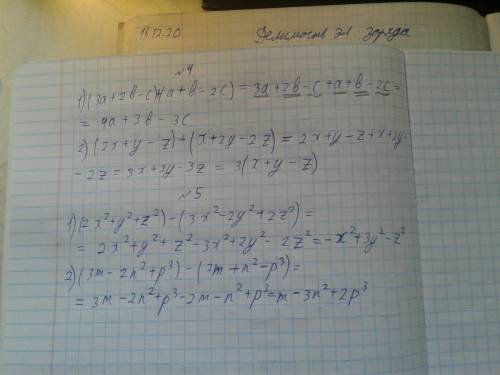 18.12.20 Делимость эл. заряда
№4
1) (3a+2b-c)+(a+b-2c) = 3a+2b-c+a+b-2c=
= 4a+3b-3c
2) (2x+y-z)+(x+2y-2z) = 2x+y-z+x+2y-
-2z = 3x+3y-3z = 3(x+y-z)
№5
1) (2x²+y²+z²)-(3x²-2y²+2z²)=
= 2x²+y²+z²-3x²+2y²-2z²=-x²+3y²-z²
2) (3m-2n²+p³)-(2m+n²-p³)=
= 3m-2n²+p³-2m-n²+p³=m-3n²+2p³